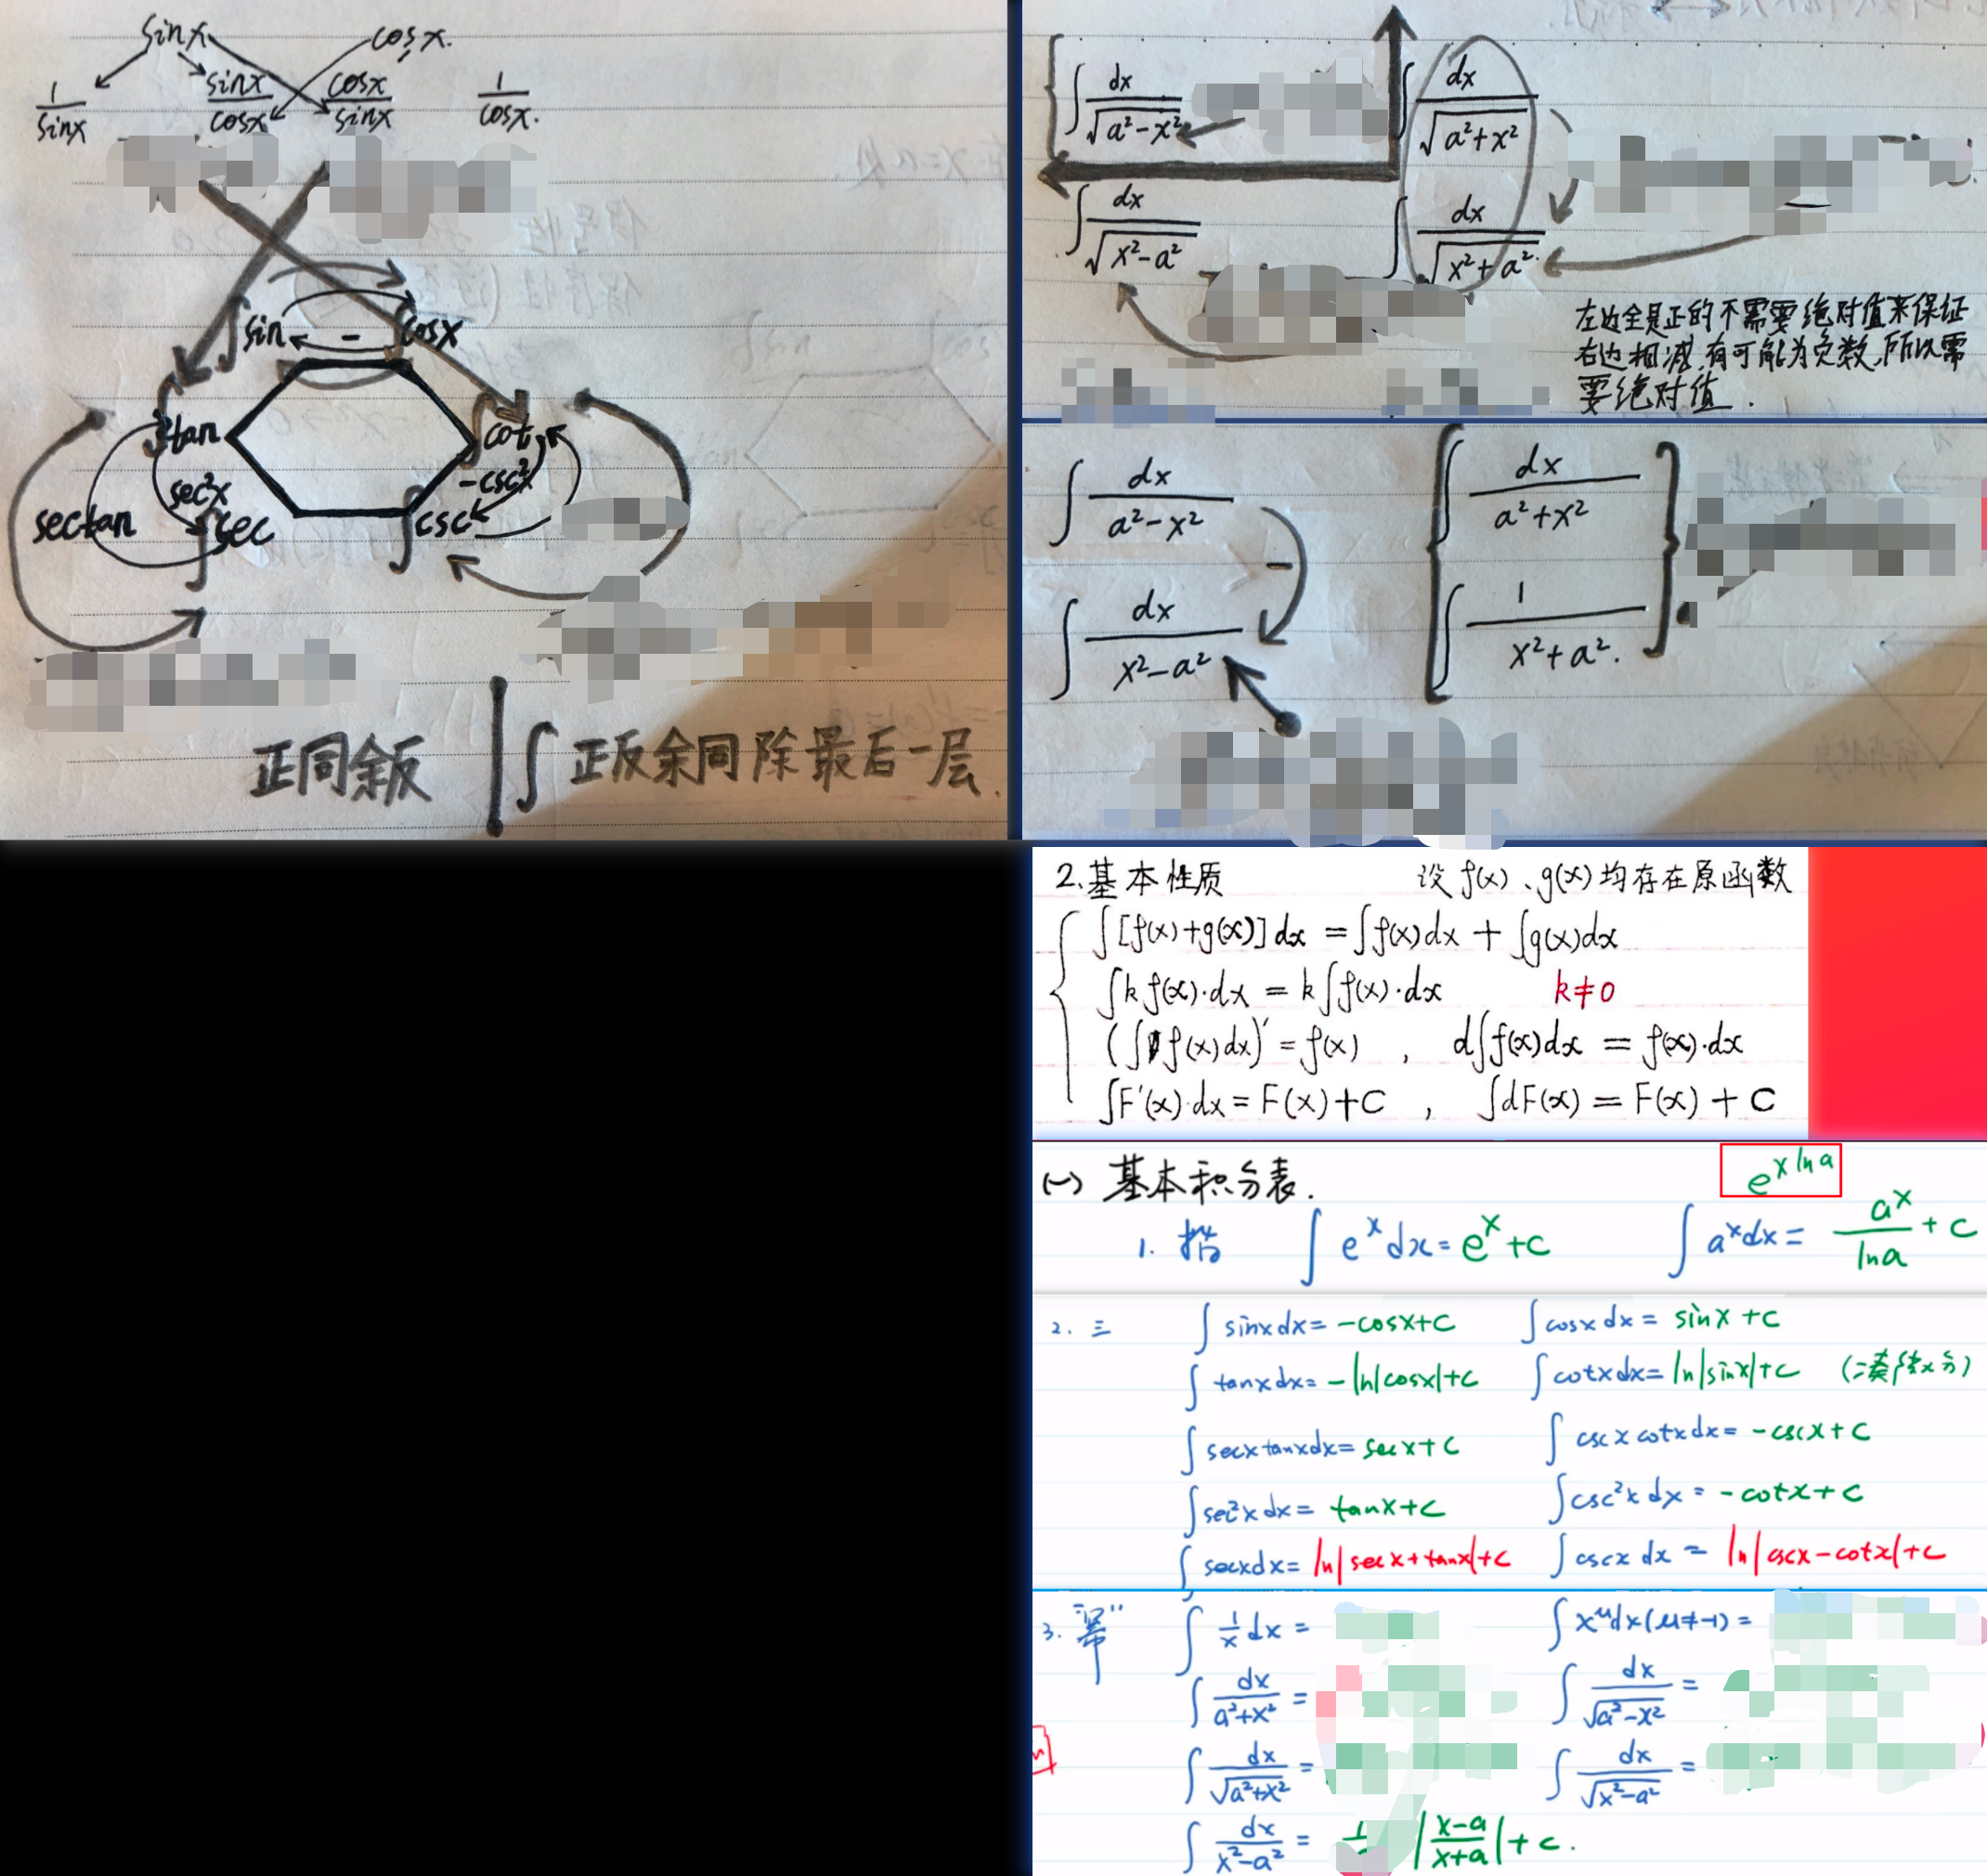 sinx cosx.
1/sinx sinx/cosx cosx/sinx 1/cosx.
∫sin - ∫cosx
∫tan ∫cot
sec²x -csc²x
sectan ∫sec ∫csc
正同余反 | ∫正反余同除最后一层.
∫dx/√(a²-x²) ∫dx/√(a²+x²)
∫dx/√(x²-a²) ∫dx/√(x²+a²)
左边全是正的不需要绝对值来保证
右边相减,有可能为负数,所以需
要绝对值.
∫dx/(a²-x²) ∫dx/(a²+x²)
-
∫dx/(x²-a²) ∫1/(x²+a²).
2.基本性质 设f(x)、g(x)均存在原函数
∫[f(x)+g(x)]dx=∫f(x)dx+∫g(x)dx
∫kf(x)·dx=k∫f(x)·dx k≠0
(∫f(x)dx)'=f(x) , d∫f(x)dx=f(x)·dx
∫F'(x)·dx=F(x)+C , ∫dF(x)=F(x)+C
(一)基本积分表. e^(xlna)
1. 指 ∫e^x dx=e^x+C ∫a^x dx=a^x/lna+C
2. 三 ∫sinxdx=-cosx+C ∫cosxdx=sinx+C
∫tanxdx=-ln|cosx|+C ∫cotxdx=ln|sinx|+C
∫secxtanxdx=secx+C ∫cscxcotxdx=-cscx+C
∫sec²xdx=tanx+C ∫csc²xdx=-cotx+C
∫secxdx=ln|secx+tanx|+C ∫cscxdx=ln|cscx-cotx|+C
3. "幂" ∫1/x dx= ∫x^μdx(μ≠-1)=
∫dx/(a²+x²)= ∫dx/√(a²-x²)=
∫dx/√(a²+x²)= ∫dx/√(x²-a²)=
∫dx/(x²-a²)= |(x-a)/(x+a)|+C.